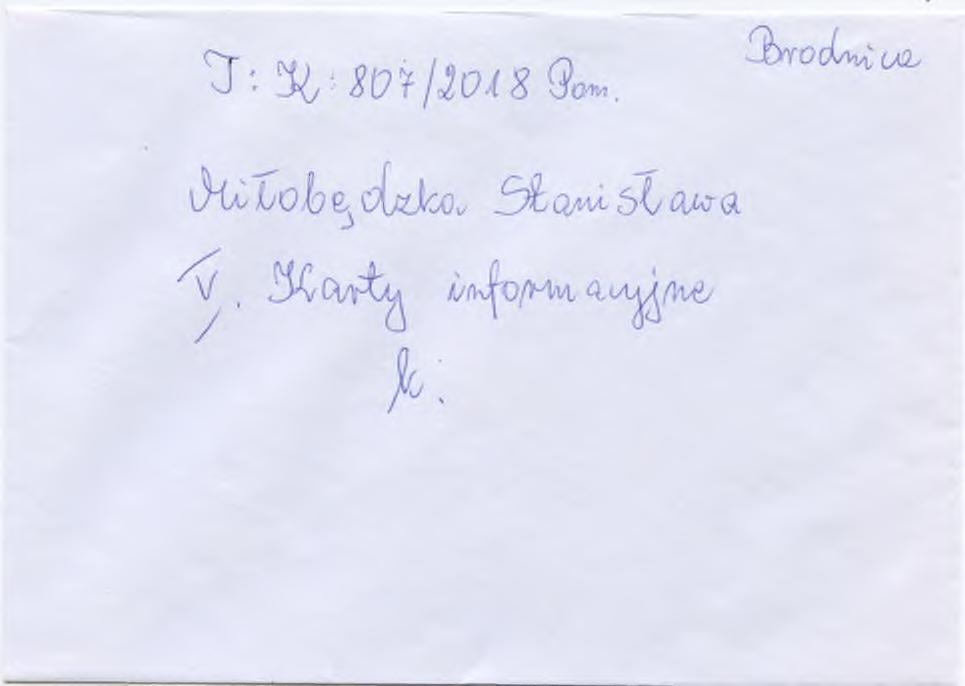 Brodnica
T: K: 807/2018 Pom.
Miłobędzka Stanisława
V. Karty informacyjne
k.